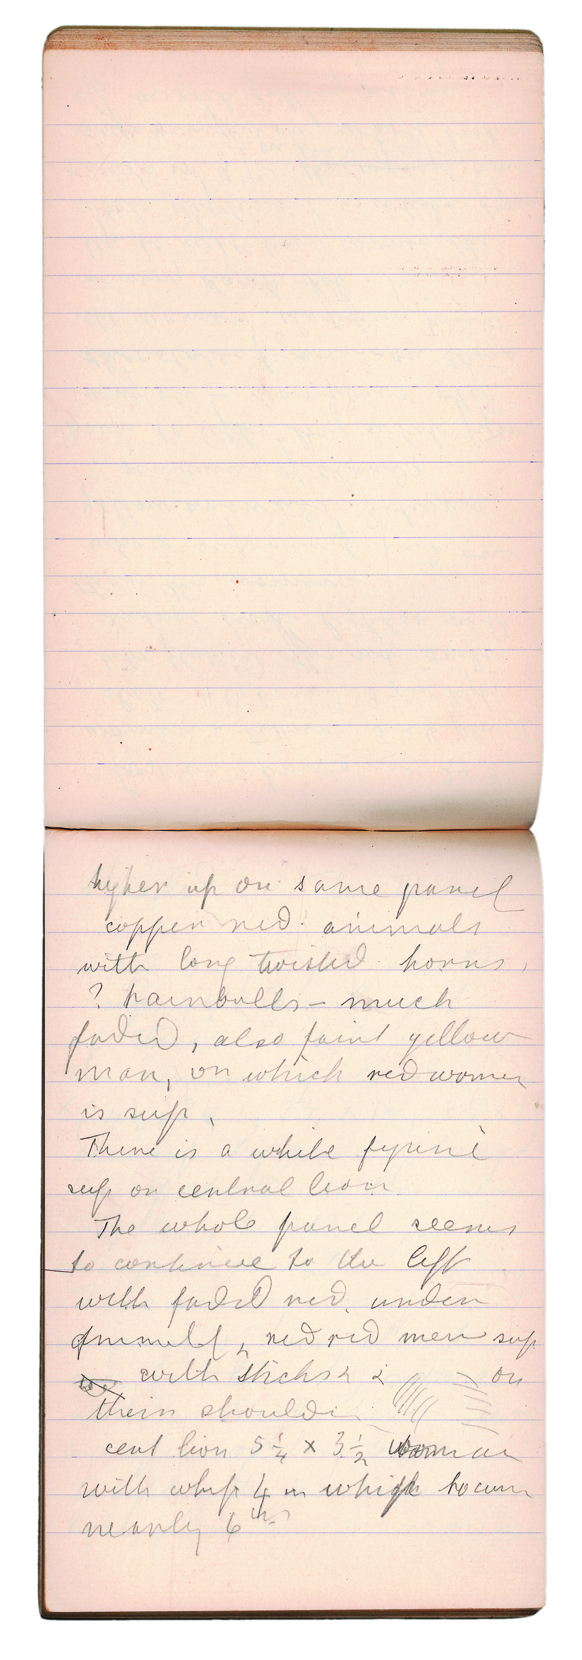 higher up on same panel
copper red animals
with long twisted horns,
? hambulls - much
faded, also faint yellow
man, on which red women
is sup.
There is a white figure
sup on central lion
The whole panel seems
to continue to the left
with faded red. under
red red men sup
with sticks on
their shoulder
cent lion 5 1/4 x 3 1/2 woman
with whip 4 in which
nearly 6 ins